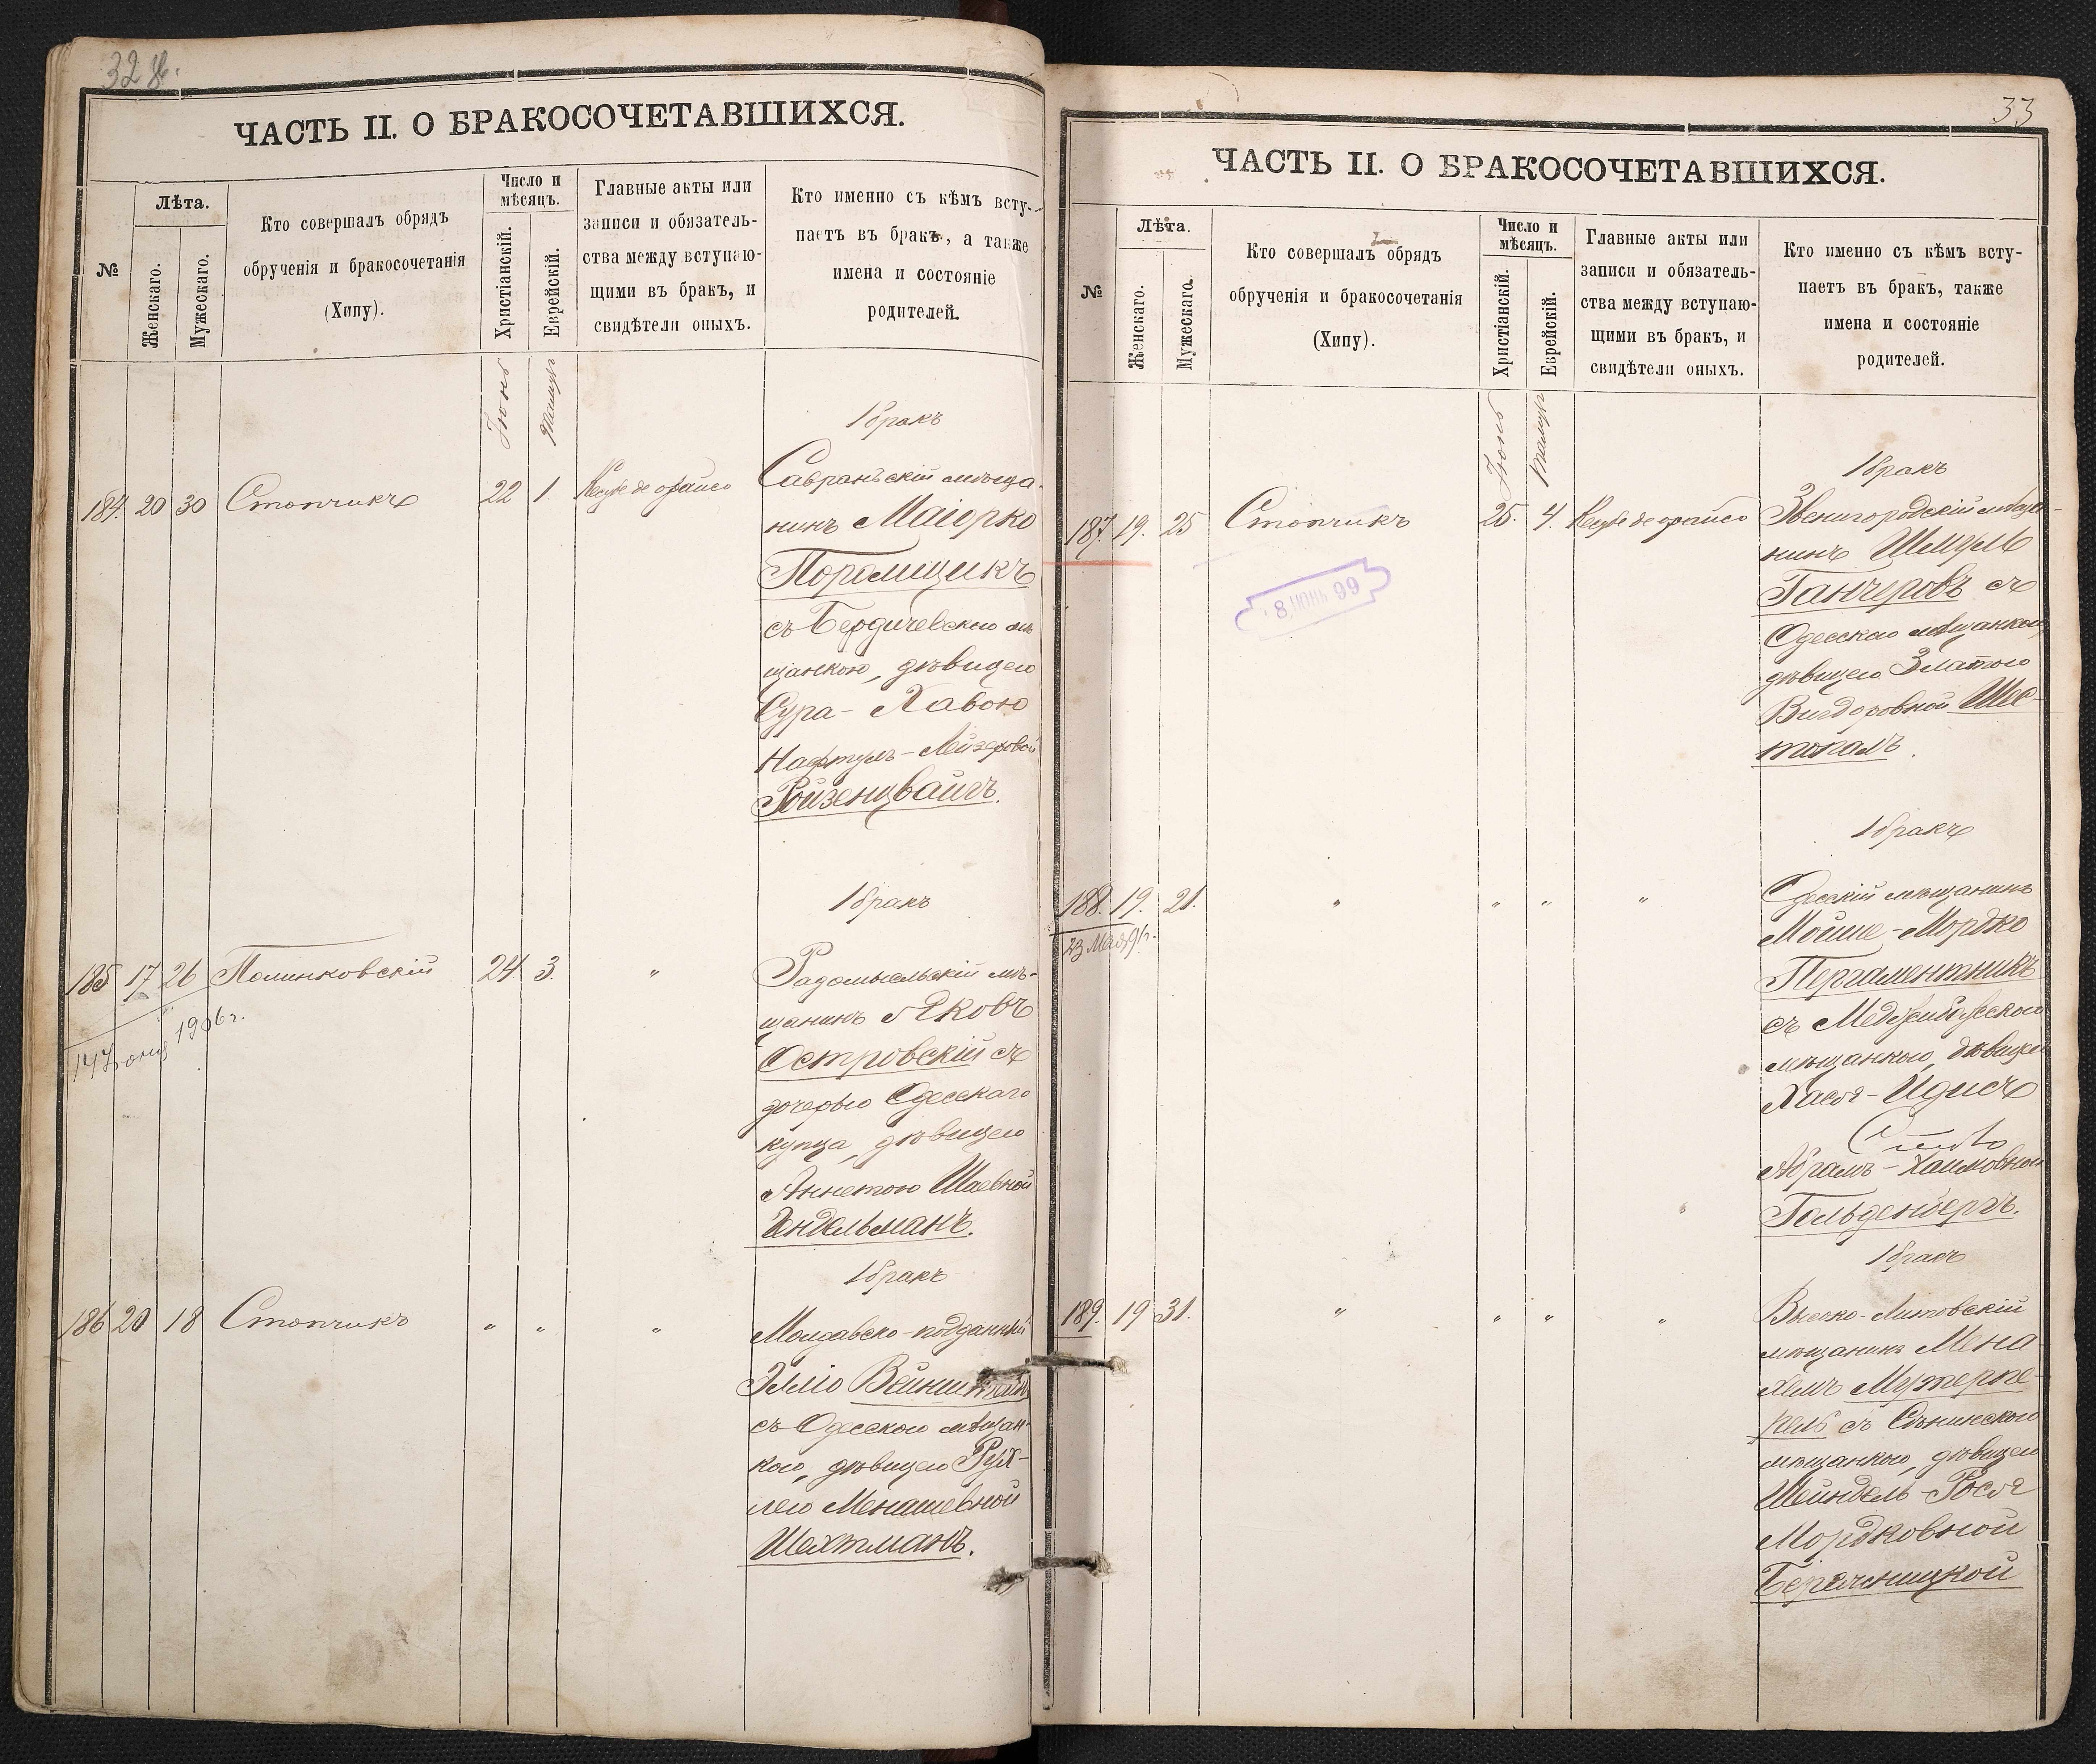 32
ЧАСТЬ II. О БРАКОСОЧЕТАВШИХСЯ.
№
Лѣта.
Женскаго.
Мужескаго.
Кто совершалъ обрядъ
обрученія и бракосочетанія
(Хипу).
Число и
мѣсяцъ.
Христіанскій.
Еврейскій.
Главные акты или
записи и обязатель-
ства между вступаю-
щими въ бракъ, и
свидѣтели оныхъ.
Кто именно съ кѣмъ всту-
паетъ въ бракъ, а также
имена и состояніе
родителей.
Іюнь
Тамузъ
1 бракъ
184. 20 30 Стопчикъ 22 1.
Савранскій мѣща-
нинъ Маіорко
Поромщикъ
съ Бердичевскою мѣ
щанкою, дѣвицею
Сура-Хавою
Нафтулъ-Лейзеровой
Ройзенцвайгъ.
1 бракъ
185 17 26 Полинковскій 24. 3. "
14 Іюня 1906 г.
Радомысльскій мѣ-
щанинъ Яковъ
Островскій съ
дочерью Одесскаго
купца, дѣвицею
Аннетою Шаевной
Ендельманъ.
1 бракъ
186 20 18 Стопчикъ " " "
Молдавско-подданный
Эліо
съ Одесскою мѣщан-
кою, дѣвицею Рух-
лею Менашевной
Шехтманъ.
33
ЧАСТЬ II. О БРАКОСОЧЕТАВШИХСЯ.
№
Лѣта.
Женскаго.
Мужескаго.
Кто совершалъ обрядъ
обрученія и бракосочетанія
(Хипу).
Число и
мѣсяцъ.
Христіанскій.
Еврейскій.
Главные акты или
записи и обязатель-
ства между вступаю-
щими въ бракъ, и
свидѣтели оныхъ.
Кто именно съ кѣмъ всту-
паетъ въ бракъ, также
имена и состояніе
родителей.
Іюнь
Тамузъ
1 бракъ
187. 19. 25 Стопчикъ 25. 4.
8 ІЮНЬ 99
Звенигородскій мѣща-
нинъ Шмуль
Ганчеровъ съ
Одесскою мѣщанкою
дѣвицею Златою
Вигдоровной Шес-
топалъ.
1 бракъ
188. 19. 21. " " " "
Одесскій мѣщанинъ
Мойше-Мордко
Пергаменщикъ
съ Меджибожскою
мѣщанкою, дѣвицею
Хася-Идисъ
Абрамъ-Хаимовной
Гольденбергъ.
1 бракъ
189. 19 31. " " " "
Высоко-Литовскій
мѣщанинъ Мена
хемъ Мутерпе-
рель съ Сѣнинскою
мѣщанкою, дѣвицею
Шейндель-Рося
Мордковной